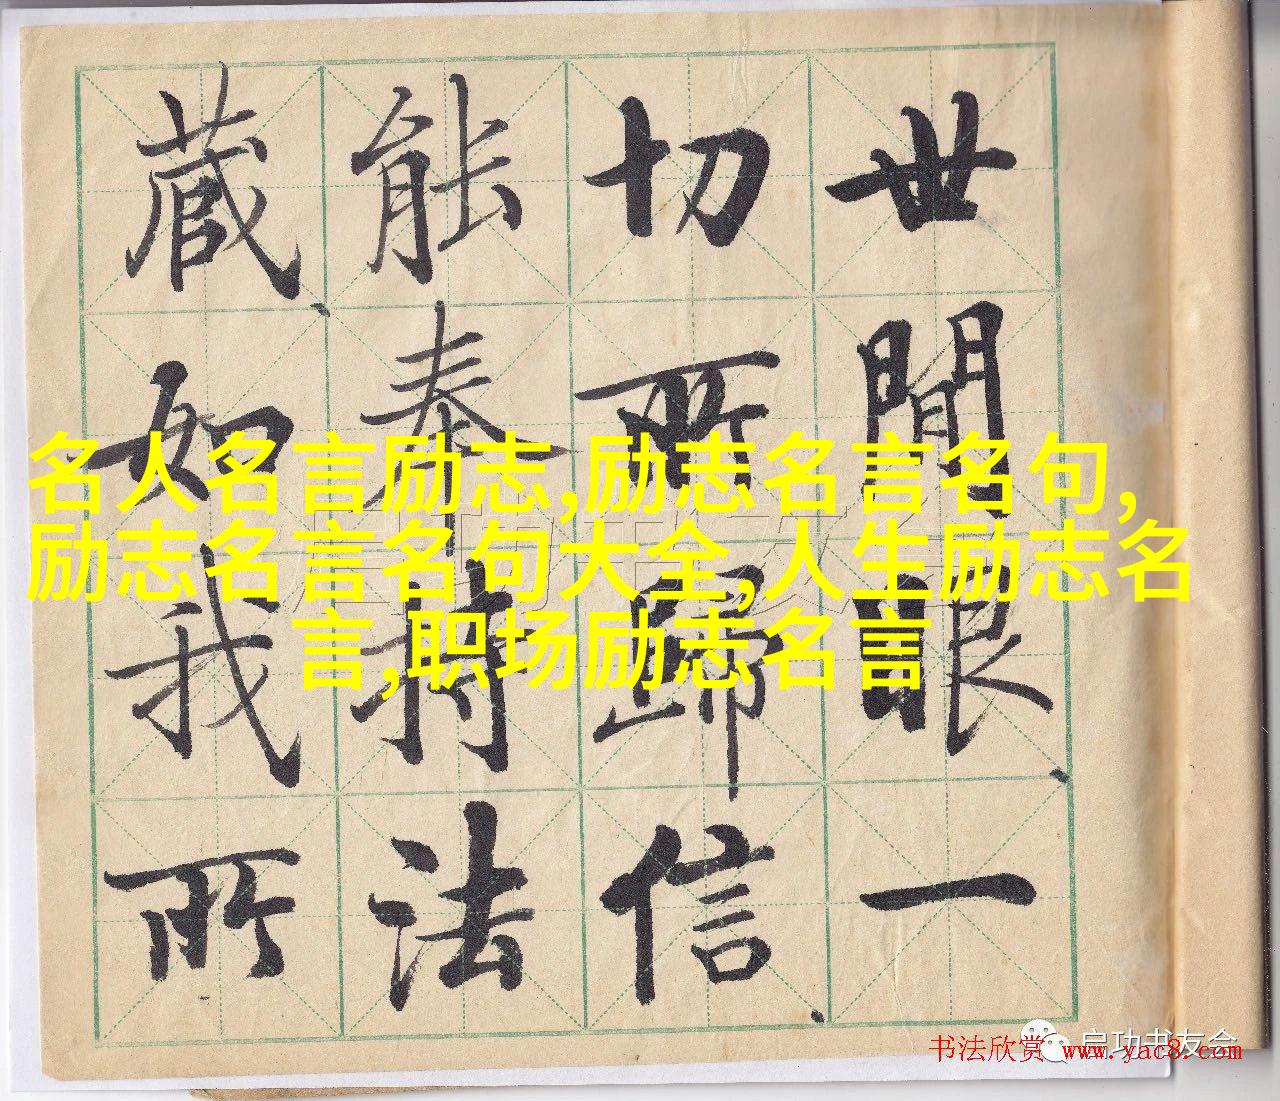 世間眼一
切所歸信
能奉持法
藏如我所
名人名言励志,励志名言名句,
励志名言名句大全,人生励志名
言,职场励志名言
启功书友会
书法欣赏 www.yac8.com